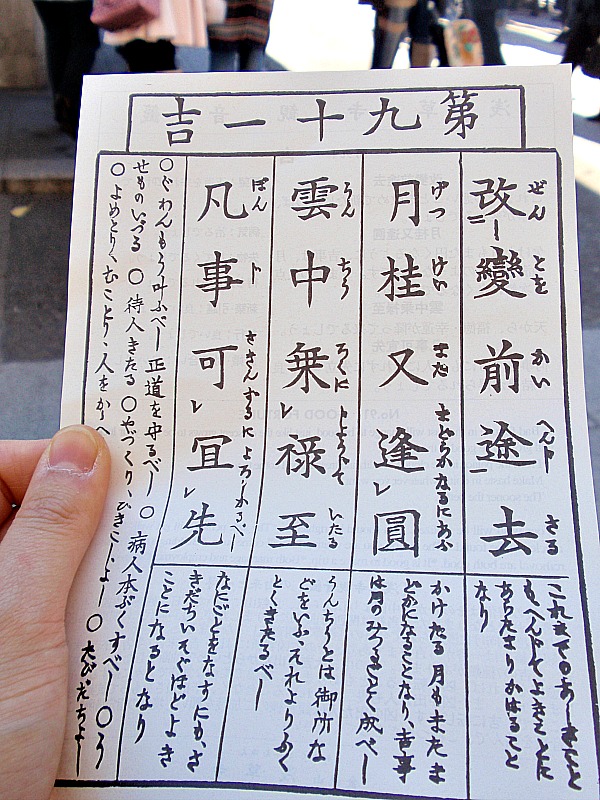 第九十一吉
改變前途去
ぜん とを かい へんじ さる
これまでのあしきこと
もへんじてよきことに
あらたまりかはること
なり
月桂又逢圓
げつ けい また まどかなるにあふ
かけたる月もまたま
どかになることなり、吉事
は月のみつるごとく成べし
雲中乗禄至
うん ちう ろくに じようじて いたる
うんちうとは御所な
どをいふ、それよりふく
とくきたるべし
凡事可宜先
ぼん じ さきんずるによろしかるべし
なにごとをなすにも、さ
きだちいそぐほどよき
ことになるとなり
○ぐわんもう叶ふべし 正道を守るべし ○ 病人本ぶくすべし ○う
せものいづる ○ 待人きたる ○やづくり、ひきこしよし ○ たびだちよし
○よめとり、むことり、人をかゝへ